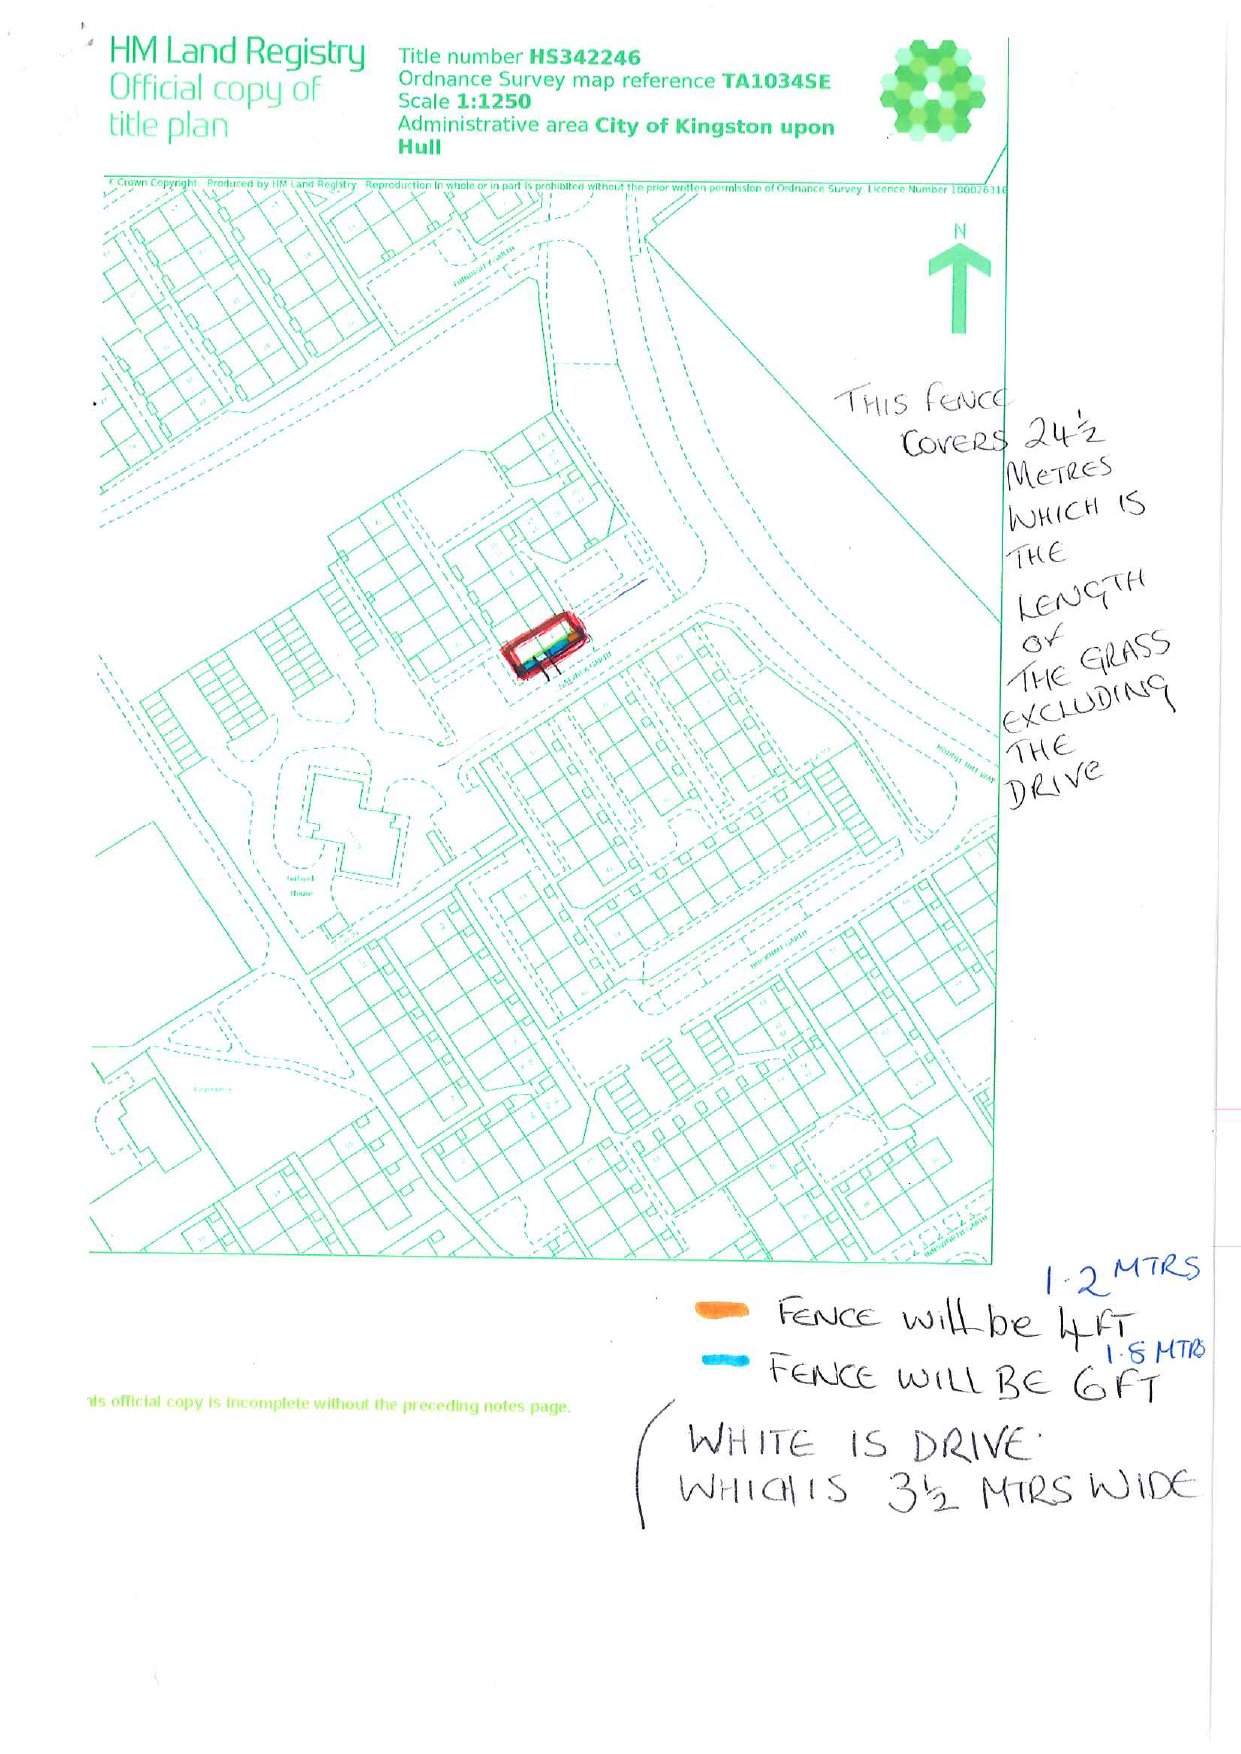 HM Land Registry
Official copy of
title plan
Title number HS342246
Ordnance Survey map reference TA1034SE
Scale 1:1250
Administrative area City of Kingston upon
Hull
Crown Copyright. Produced by HM Land Registry. Reproduction in whole or in part is prohibited without the prior written permission of Ordnance Survey. Licence Number 100026316
N
THIS FENCE
COVERS 24½
METRES
WHICH IS
THE
LENGTH
OF
THE GRASS
EXCLUDING
THE
DRIVE
House
1.2 MTRS
FENCE will be 4FT
1.8 MTRS
FENCE WILL BE 6FT
his official copy is incomplete without the preceding notes page.
WHITE IS DRIVE.
WHICH IS 3½ MTRS WIDE